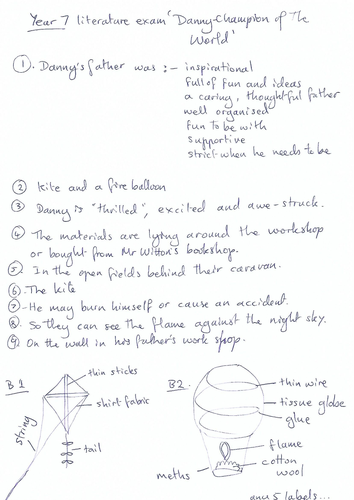 Year 7 literature exam 'Danny-Champion of The
World'
1. Danny's father was :- inspirational
full of fun and ideas
a caring, thoughtful father
well organised
fun to be with
supportive
strict when he needs to be
2 Kite and a fire balloon
3 Danny is "thrilled", excited and awe-struck.
4 The materials are lying around the workshop
or bought from Mr Witton's bookshop.
5 In the open fields behind their caravan.
6. The kite
7 He may burn himself or cause an accident.
8. So they can see the flame against the night sky.
9 On the wall in his father's work shop.
B1
thin sticks
shirt fabric
string
tail
B2.
thin wire
tissue globe
glue
flame
cotton
wool
meths
any 5 labels...